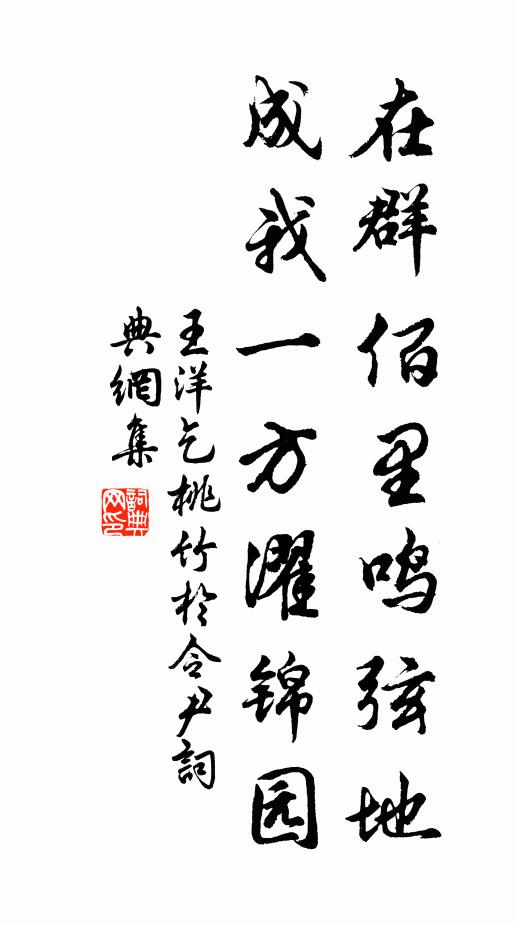 在群佰里鸣弦地
成我一方濯锦园
王洋乞桃竹於令尹詞
典網集
詞典网印